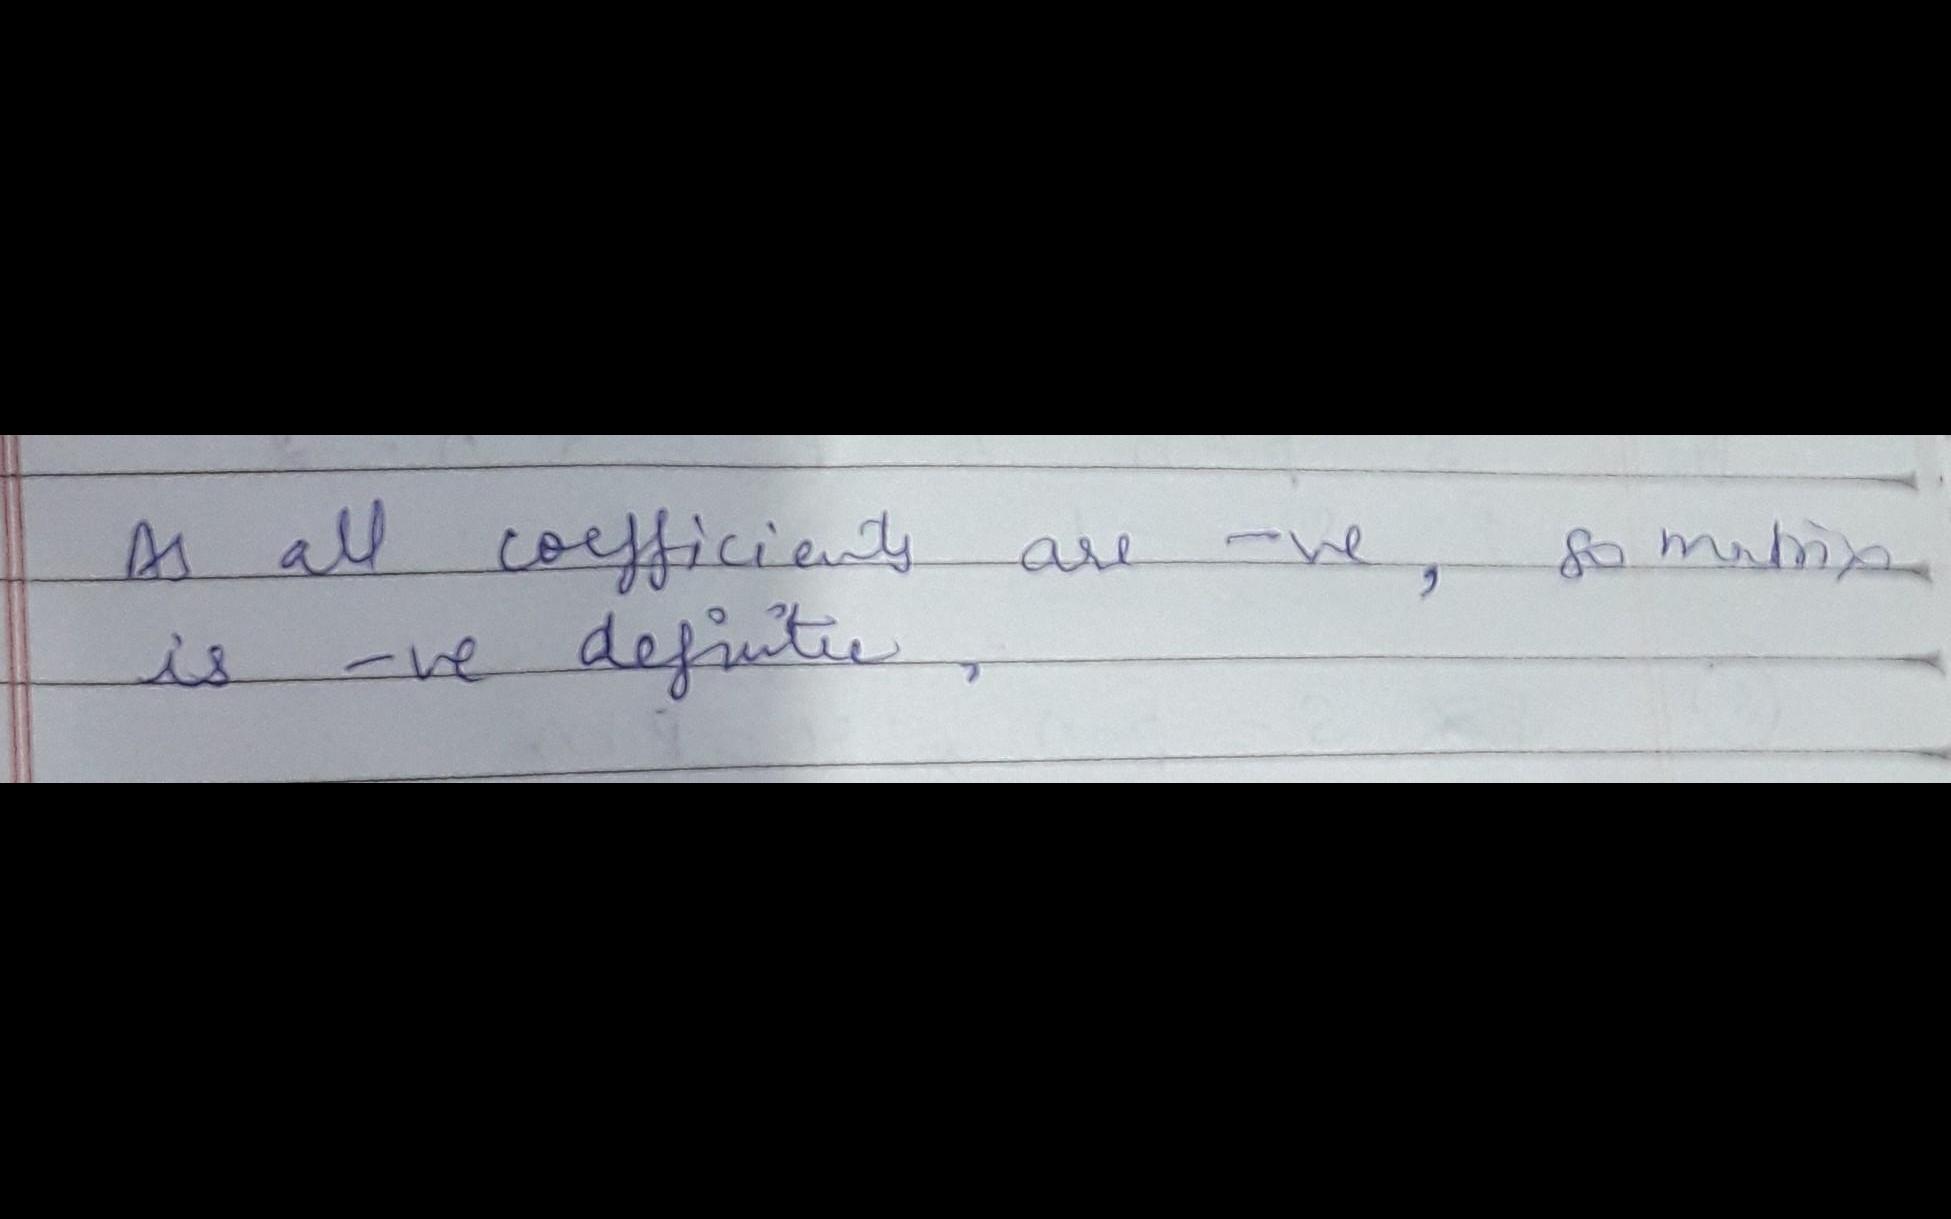 As all coefficients are -ve, so matrix
is -ve definite,